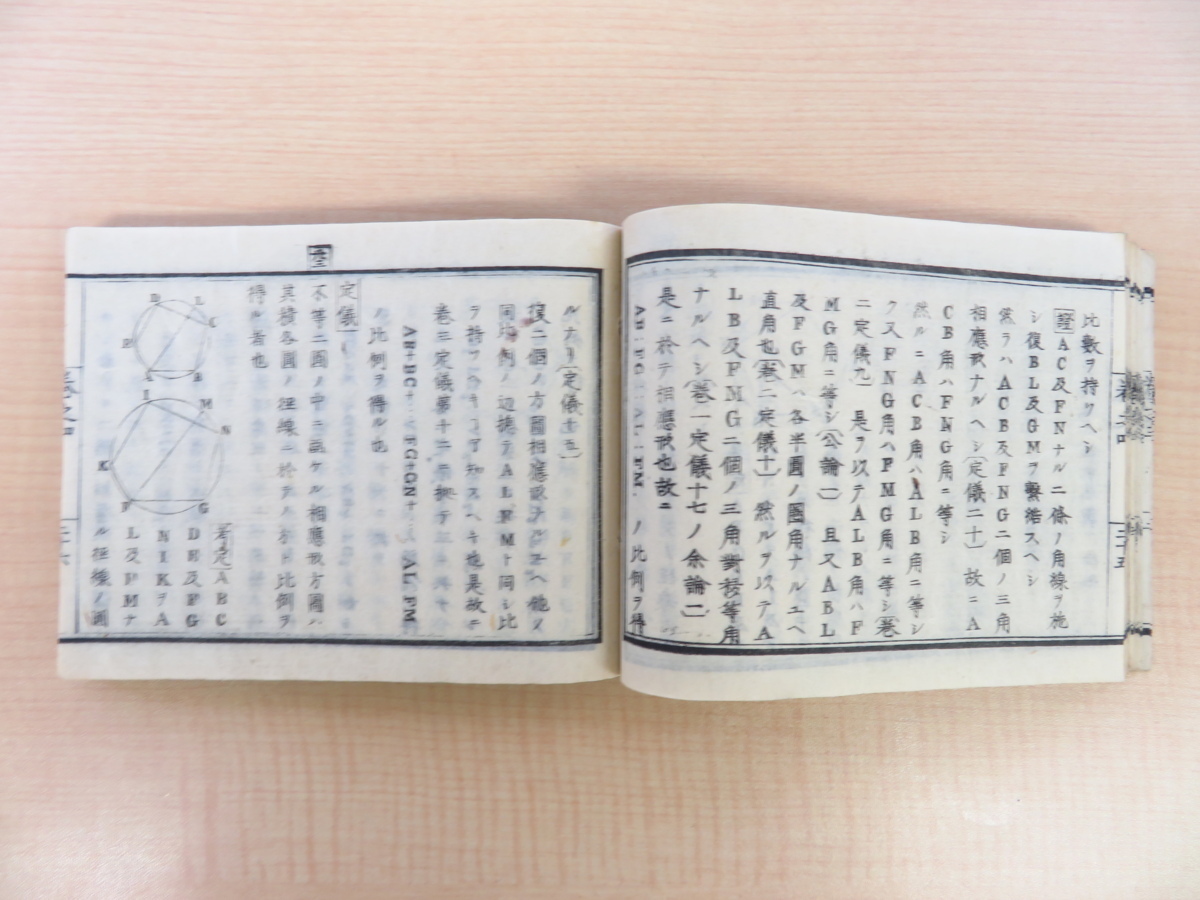 比数ヲ持ツヘシ
證 AC及FNナル二條ノ角線ヲ施
シ復BL及GMヲ繋結スヘシ
然ラハACB及FNG二個ノ三角
相應形ナルヘシ(定儀二十) 故ニA
CB角ハFNG角ニ等シ
然ルニACB角ハALB角ニ等シ
ク又FNG角ハFMG角ニ等シ(巻
二定儀九) 是ヲ以テALB角ハF
MG角ニ等シ(公論一) 且又ABL
及FGMハ各半圓ノ圓角ナルユヘ
直角也(巻二定儀十) 然ルヲ以テA
LB及FMG二個ノ三角對接等角
ナルヘシ(巻一定儀十七ノ余論二)
是ニ於テ相應形也故ニ
AB:FG::AL:FM. ノ比例ヲ得
巻之四
三十五
ルナリ(定儀十五)
復二個ノ方圓相應形ナルユヘ他ノ
同比例ノ辺挽テAL FMト同シ比
ヲ持ツヘキ了知スヘキ也是故ニ
巻三定儀第十二ニ拠テ
AB+BC+::FG+GN+::AL:FM
ノ比例ヲ得ル也
定儀
不等二圓ノ中ニ画ケル相應形方圓ハ
其積各圓ノ徑線ニ於テノ如ト比例ヲ
得ル者也
B
L
C
E
A
B
I
M
N
K
F
G
若是ABC
DE及FG
NIKヲA
L及FMナ
ル徑線ノ圓
巻之四
三十六